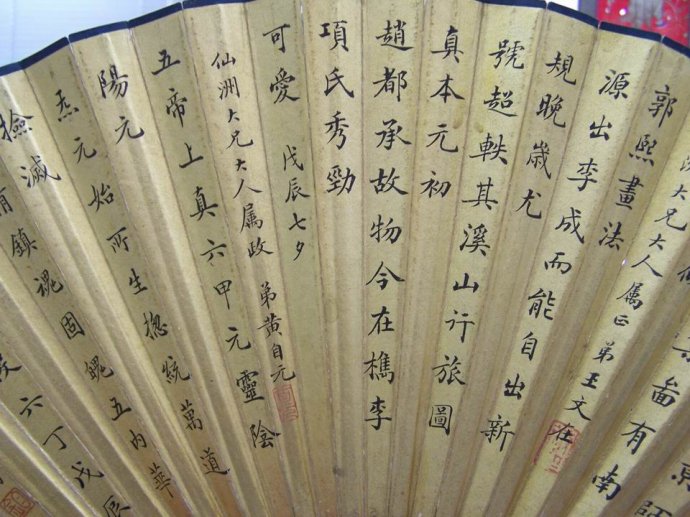 京師
啚有南
大兄大人属正 弟王文在
郭熙畫法
源出李成而能自出新
規晚歲尤
號超軼其溪山行旅圖
真本元初
趙都承故物今在檇李
項氏秀勁
可愛 戊辰七夕
仙洲大兄大人属政 弟黃自元
五帝上真六甲元靈陰
陽元
炁元始所生摠統萬道
撿滅
有鎮魂固魄五内華
六丁戊辰